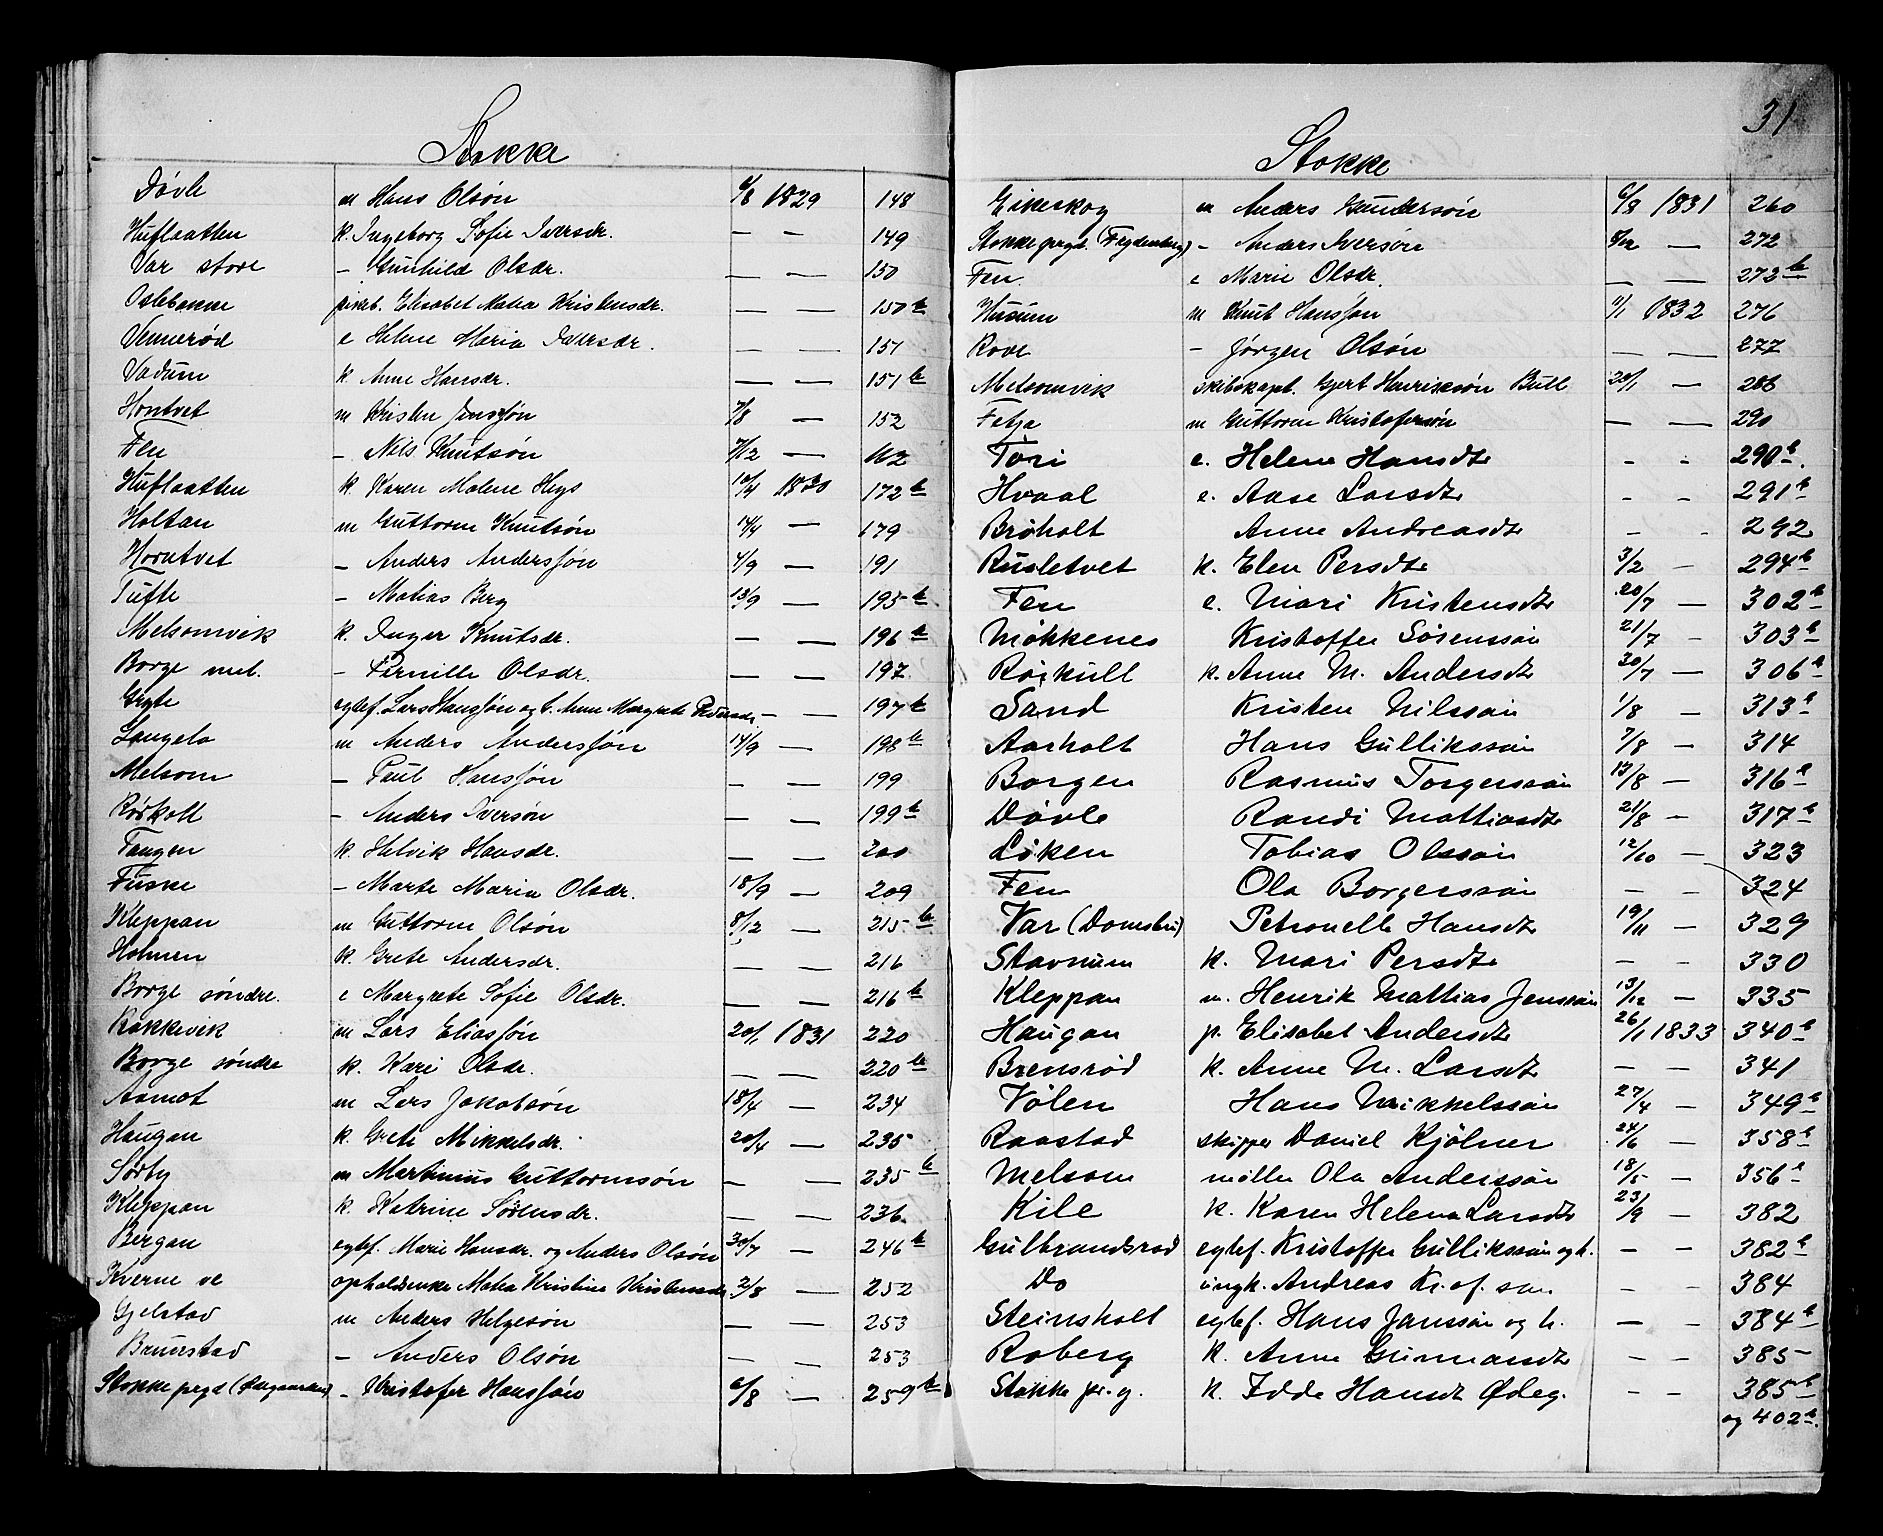 Stokke
Døvle m Hans Olsøn 6/6 1829 148
Huflaatten k. Ingeborg Sofie Iversdr. — — 149
Var store – Gunhild Olsdr. — — 150
Oslebakke pikeb. Elisabet Matea Kristensdr. — — 150 b
Vennerød e Helene Maria Iversdr. — — 151
Vadum k Anne Hansdr. — — 151 b
Hontvet m Kristen Jensføn 7/8 — 152
Fen – Nils Knutsøn 7/12 — 162
Huflaatten k. Karen Malene Heys 10/4 1830 172 b
Holtan m Guttorm Knutsøn 14/4 — 179
Horntvet – Anders Andersføn 4/9 — 191
Tufte – Matias Berg 13/9 — 195 b
Melsomvik k. Inger Knutsdr. — — 196 b
Borge mel. – Pernille Olsdr. — — 197
Gryte egtef. Lars Hansføn og h. Anne Margrete Pedersdr. — — 197 b
Langelo m Anders Andersføn 14/9 — 198 b
Melsom – Paul Hansføn — — 199
Rørkoll – Anders Iversøn — — 199 b
Tangen k. Helvik Hansdr. — — 200
Fuske – Marte Maria Olsdr. 18/9 — 209
Kleppan m Guttorm Olsøn 8/12 — 215 b
Holmen k. Grete Andersdr. — — 216
Borge søndre. e Margrete Sofie Olsdr. — — 216 b
Rakkevik m Lars Eliasføn 20/1 1831 220
Borge søndre k. Kari Olsdr. — — 220 b
Aamot m Lars Jakobsøn 18/4 — 234
Haugan k. Grete Mikkelsdr. 20/4 — 235
Sørby m Martinius Guttormsøn — — 235 b
Kleppan k. Katrine Sørensdr. — — 236
Bergan egtef. Marie Hansdr. og Anders Olsøn 30/7 — 246 b
Kverne ve opholdsenke Matea Kristine Kristensdr 2/8 — 252
Gjelstad m Anders Helgesøn — — 253
Brunstad – Anders Olsøn — — 253
Stokke prgd (Ødegaarden) – Kristofer Hansføn 6/8 — 259 b
31
Stokke
Eikeskog m Anders Gundersøn 6/8 1831 260
Stokke prgd. (Feydenberg) – Anders Iversøn 8/12 — 272
Fen e Marie Olsdr. — — 273 b
Husum m Knut Hansføn 11/1 1832 276
Rove – Jørgen Olsøn — — 277
Melsomvik skibskapt. Gjert Henriksøn Bull 20/1 — 288
Fetja m Guttorm Kristofersøn — — 290
Tori e. Helene Hansdtr - - 290 b.
Hvaal e. Aase Larsdtr - - 291 b
Brøholt Anne Andreasdtr - - 292
Rusletvet k. Elen Persdtr 3/2 — 294 b
Fen e. Mari Kristensdtr 20/7 — 302 b
Møkkenes Kristoffer Sørenssøn 21/7 — 303 b
Røikull k. Anne M. Andersdtr 30/7 — 306 b
Sand Kristen Nilssøn 1/8 — 313 b
Aarholt Hans Gullikssøn 7/8 — 314
Borgen Rasmus Torgerssøn 13/8 — 316 b
Døvle Randi Mattiasdtr 21/8 — 317 b
Løken Tobias Olssøn 12/10 — 323
Fen Ola Borgerssøn - - 324
Var (Domsbu) Petronelle Hansdtr 19/11 — 329
Stavnum k. Mari Persdtr — — 330
Kleppan m. Henrik Mattias Jenssøn 13/12 — 335
Haugan p. Elisabet Andersdtr 26/1 1833 340 b
Brensrød k. Anne M. Larsdtr - - 341
Vølen Hans Mikkelssøn 27/4 — 349 b
Raastad skipper Daniel Kjølner 24/6 — 358 b
Melsom møller Ola Anderssøn 18/5 — 356 b
Kile k. Karen Helena Larsdtr 23/9 — 382
Gulbrandsrød egtef. Kristoffer Gullikssøn og h. — — 382 b
Do ungk. Andreas Kr. of. søn - - 384
Steinsholt egtef. Hans Janssøn og h. — — 384 b
Roberg k. Anne Gunnarsdtr - - 385
Stokke pr. g. k. Idde Hansdt Ødeg. - - 385 b
og 402 b.